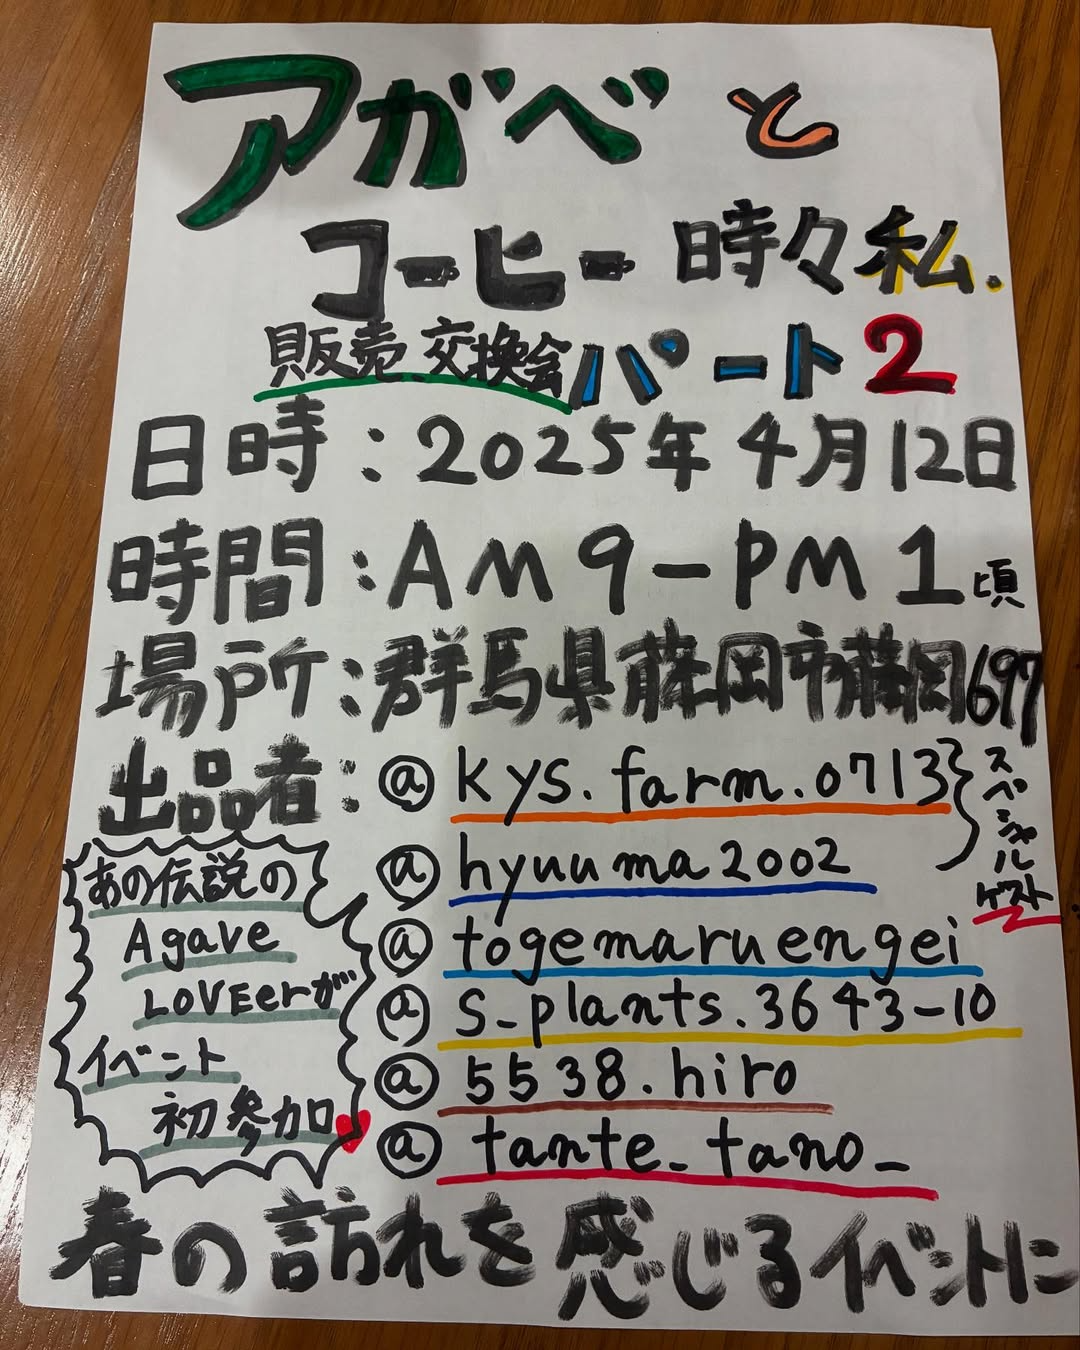 アガベと
コーヒー 時々私.
販売、交換会パート2
日時：2025年4月12日
時間：AM9-PM1頃
場所：群馬県藤岡市藤岡697
出品者：@kys.farm.0713
@hyuuma2002
スペシャルゲスト
@togemaruengei
@s_plants.3643-10
@5538.hiro
@tante_tano_
あの伝説の
Agave
LOVEerが
イベント
初参加
春の訪れを感じるイベントに